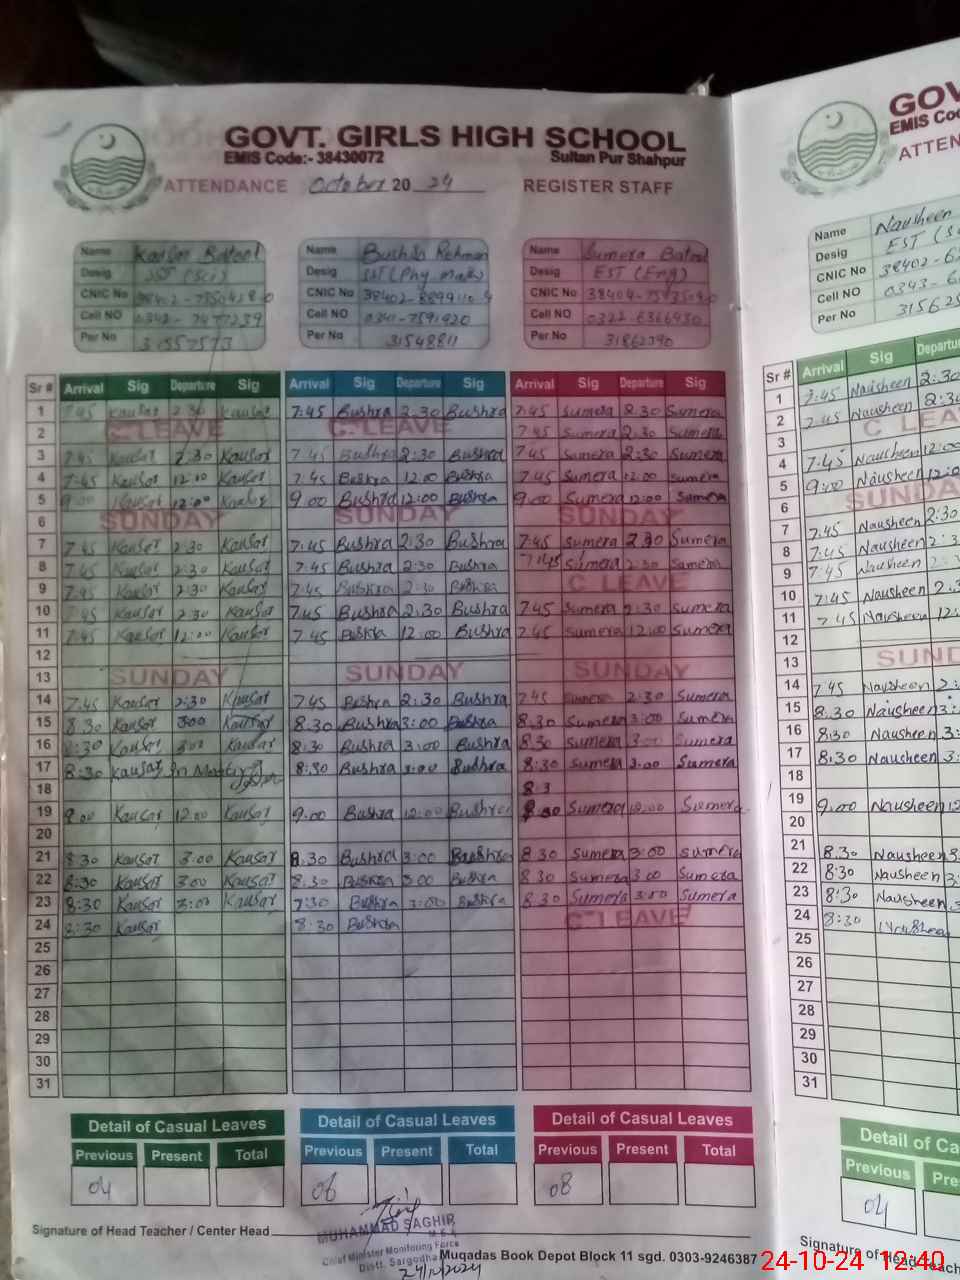 GOVT. GIRLS HIGH SCHOOL
EMIS Code:- 38430072 Sultan Pur Shahpur
ATTENDANCE October 2024 REGISTER STAFF
Name Kausar Batool
Desig SST (Sci)
CNIC No
Cell NO 0342-7477239
Per No
Name Bushra Rehman
Desig SST (Phy Math)
CNIC No
Cell NO
Per No 31548811
Name Sumera Batool
Desig EST (Eng)
CNIC No
Cell NO 0322-6366930
Per No 31862390
Sr # Arrival Sig Departure Sig Arrival Sig Departure Sig Arrival Sig Departure Sig
1 7:45 Kausar 2:30 Kausar 7:45 Bushra 2:30 Bushra 7:45 Sumera 2:30 Sumera
2 C. LEAVE C. LEAVE 7:45 Sumera 2:30 Sumera
3 7:45 Kausar 2:30 Kausar 7:45 Bushra 2:30 Bushra 7:45 Sumera 2:30 Sumera
4 7:45 Kausar 12:00 Kausar 7:45 Bushra 12:00 Bushra 7:45 Sumera 12:00 Sumera
5 9:00 Kausar 12:00 Kausar 9:00 Bushra 12:00 Bushra 9:00 Sumera 12:00 Sumera
6 SUNDAY SUNDAY SUNDAY
7 7:45 Kausar 2:30 Kausar 7:45 Bushra 2:30 Bushra 7:45 Sumera 2:30 Sumera
8 7:45 Kausar 2:30 Kausar 7:45 Bushra 2:30 Bushra 7:45 Sumera 2:30 Sumera
9 7:45 Kausar 2:30 Kausar 7:45 Bushra 2:30 Bushra C. LEAVE
10 7:45 Kausar 2:30 Kausar 7:45 Bushra 2:30 Bushra 7:45 Sumera 2:30 Sumera
11 7:45 Kausar 12:00 Kausar 7:45 Bushra 12:00 Bushra 7:45 Sumera 12:00 Sumera
12
13 SUNDAY SUNDAY SUNDAY
14 7:45 Kausar 2:30 Kausar 7:45 Bushra 2:30 Bushra 7:45 Sumera 2:30 Sumera
15 8:30 Kausar 3:00 Kausar 8:30 Bushra 3:00 Bushra 8:30 Sumera 3:00 Sumera
16 8:30 Kausar 3:00 Kausar 8:30 Bushra 3:00 Bushra 8:30 Sumera 3:00 Sumera
17 8:30 Kausar 8:30 Bushra 3:00 Bushra 8:30 Sumera 3:00 Sumera
18 8:3
19 9:00 Kausar 12:00 Kausar 9:00 Bushra 12:00 Bushra Sumera 12:00 Sumera
20
21 8:30 Kausar 3:00 Kausar 8:30 Bushra 3:00 Bushra 8:30 Sumera 3:00 Sumera
22 8:30 Kausar 3:00 Kausar 8:30 Bushra 3:00 Bushra 8:30 Sumera 3:00 Sumera
23 8:30 Kausar 3:00 Kausar 7:30 Bushra 3:00 Bushra 8:30 Sumera 3:00 Sumera
24 8:30 Kausar 8:30 Bushra C. LEAVE
25
26
27
28
29
30
31
Detail of Casual Leaves Detail of Casual Leaves Detail of Casual Leaves
Previous Present Total Previous Present Total Previous Present Total
04 06 08
Signature of Head Teacher / Center Head
MUHAMMAD SAGHIR
M.E.A
Chief Minister Monitoring Force
Distt. Sargodha
24/10/2024
Muqadas Book Depot Block 11 sgd. 0303-9246387
GOV
EMIS Co
ATTEN
Name Nausheen
Desig EST (S
CNIC No 38402-6
Cell NO 0343-6
Per No 31562
Sr # Arrival Sig Departu
1 7:45 Nausheen 2:30
2 7:45 Nausheen 2:30
3 C LEAV
4 7:45 Nausheen 12:00
5 9:00 Nausheen 12:0
6 SUNDA
7 7:45 Nausheen 2:30
8 7:45 Nausheen 2:3
9 7:45 Nausheen
10 7:45 Nausheen 2:3
11 7:45 Nausheen 12:
12
13 SUND
14 7:45 Nausheen 2:
15 8:30 Nausheen 3:
16 8:30 Nausheen 3:
17 8:30 Nausheen 3:
18
19 9:00 Nausheen 12
20
21 8:30 Nausheen 3
22 8:30 Nausheen 3
23 8:30 Nausheen 3
24 8:30 Nausheen
25
26
27
28
29
30
31
Detail of Ca
Previous Pre
04
Signature of Head Teach
24-10-24 12:40